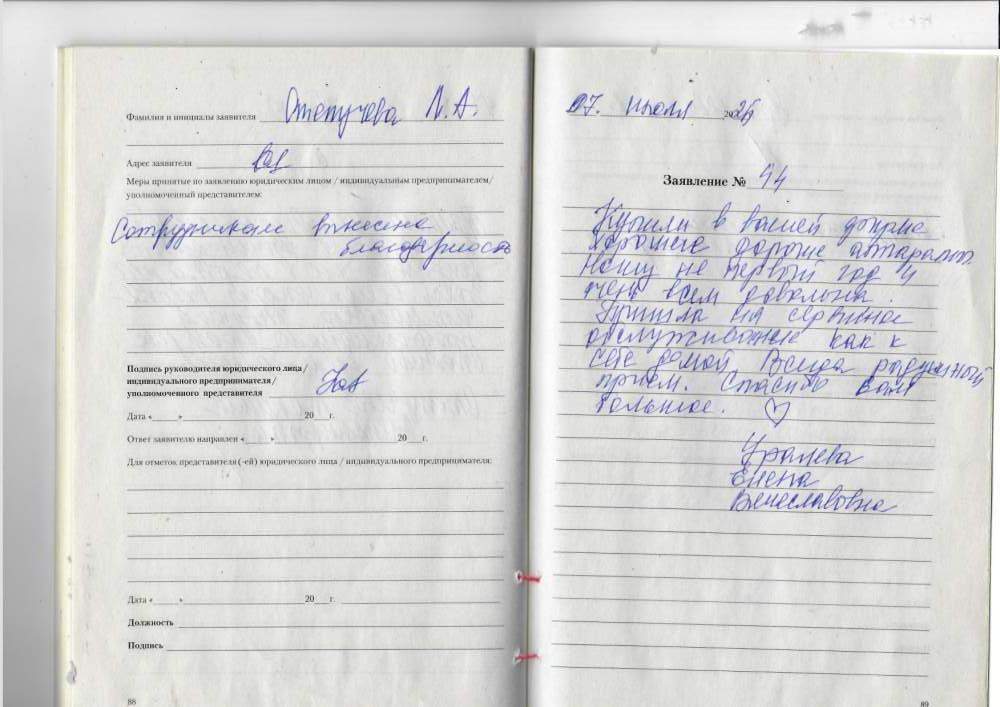 Фамилия и инициалы заявителя Отепучева Л.А.
Адрес заявителя
Меры принятые по заявлению юридическим лицом / индивидуальным предпринимателем/
уполномоченный представителем:
Сотрудникам вынесена
благодарность
Подпись руководителя юридического лица /
индивидуального предпринимателя /
уполномоченного представителя
Дата «____»____20__г.
Ответ заявителю направлен «____»____20__г.
Для отметок представителя (-ей) юридического лица / индивидуального предпринимателя:
Дата «____»____20__г.
Должность
Подпись
88
07. июля 2026
Заявление № 44
Купили в вашей фирме
хорошие дорогие аппараты.
Ношу не первый год и
очень всем довольна.
Пришла на сервисное
обслуживание как к
себе домой. Всегда радушный
прием. Спасибо вам
большое. ♡
Уралева
Елена
Вячеславовна
89